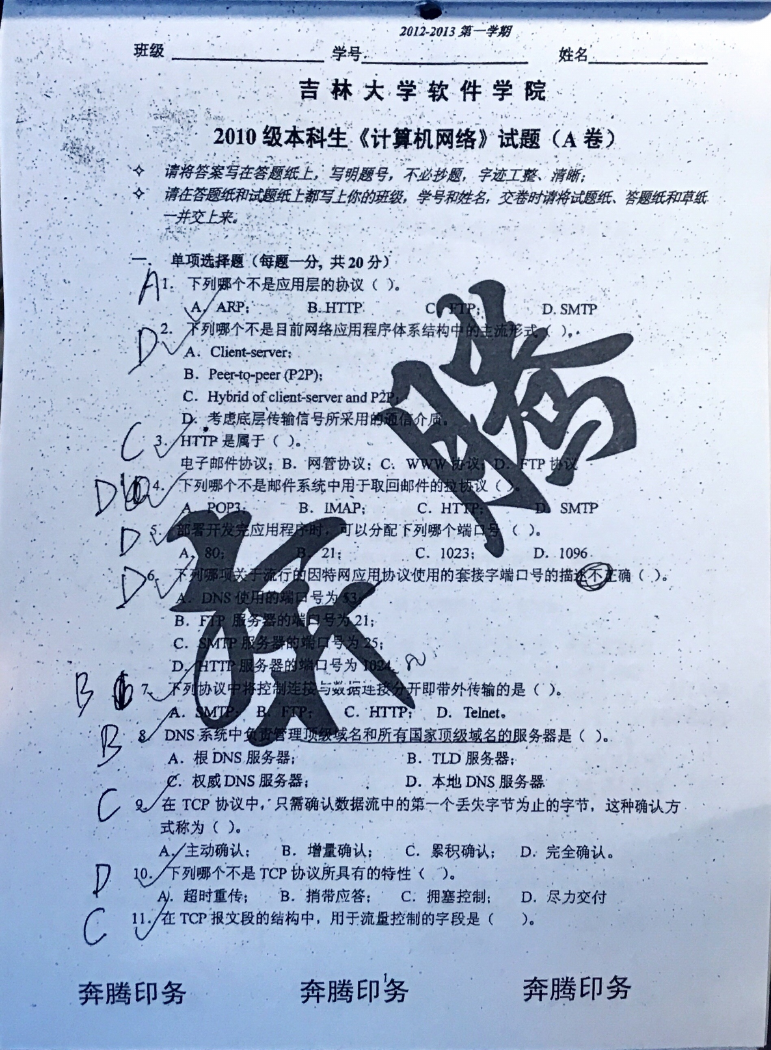 2012-2013 第一学期
班级 学号 姓名
吉林大学软件学院
2010 级本科生《计算机网络》试题（A 卷）
✧ 请将答案写在答题纸上，写明题号，不必抄题，字迹工整、清晰；
✧ 请在答题纸和试题纸上都写上你的班级，学号和姓名，交卷时请将试题纸、答题纸和草纸
一并交上来。
一. 单项选择题（每题一分, 共 20 分）
A 1. 下列哪个不是应用层的协议（ ）。
A. ARP; B. HTTP C. FTP; D. SMTP
2. 下列哪个不是目前网络应用程序体系结构中的主流形式（ ）。
D A. Client-server;
B. Peer-to-peer (P2P);
C. Hybrid of client-server and P2P
D. 考虑底层传输信号所采用的通信介质。
C 3. HTTP 是属于（ ）。
电子邮件协议; B. 网管协议; C. WWW 协议; D. FTP 协议
D 4. 下列哪个不是邮件系统中用于取回邮件的拉协议（
A. POP3; B. IMAP; C. HTTP; D. SMTP
D 5. 部署开发完应用程序时，可以分配下列哪个端口号 （ ）。
A. 80; B. 21; C. 1023; D. 1096
D 6. 下列哪项关于流行的因特网应用协议使用的套接字端口号的描述不正确（ ）。
A. DNS 使用的端口号为 53;
B. FTP 服务器的端口号为 21;
C. SMTP 服务器的端口号为 25;
D. HTTP 服务器的端口号为 1024
B 7. 下列协议中将控制连接与数据连接分开即带外传输的是（ ）。
A. SMTP; B. FTP; C. HTTP; D. Telnet。
B 8. DNS 系统中负责管理顶级域名和所有国家顶级域名的服务器是（ ）。
A. 根 DNS 服务器; B. TLD 服务器;
C. 权威 DNS 服务器; D. 本地 DNS 服务器
C 9. 在 TCP 协议中，只需确认数据流中的第一个丢失字节为止的字节，这种确认方
式称为（ ）。
A. 主动确认; B. 增量确认; C. 累积确认; D. 完全确认。
D 10. 下列哪个不是 TCP 协议所具有的特性（ ）。
A. 超时重传; B. 捎带应答; C. 拥塞控制; D. 尽力交付
C 11. 在 TCP 报文段的结构中，用于流量控制的字段是（ ）。
奔腾
1
奔腾印务 奔腾印务 奔腾印务